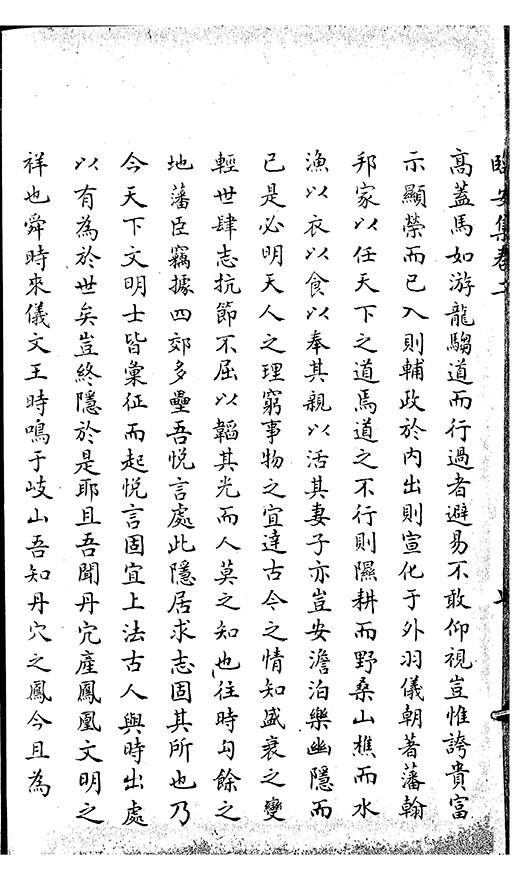 臨安集卷二
髙蓋馬如游龍騶道而行過者避易不敢仰視豈惟誇貴富
示顯榮而已入則輔政於内出則宣化于外羽儀朝著藩翰
邦家以任天下之道焉道之不行則隰耕而野桑山樵而水
漁以衣以食以奉其親以活其妻子亦豈安澹泊樂幽隱而
已是必明天人之理窮事物之宜達古今之情知盛衰之變
輕世肆志抗節不屈以韜其光而人莫之知也往時勾餘之
地藩臣竊據四郊多壘吾悦言處此隱居求志固其所也乃
今天下文明士皆彙征而起悦言固宜上法古人與時出處
以有為於世矣豈終隱於是耶且吾聞丹穴產鳳凰文明之
祥也舜時來儀文王時鳴于岐山吾知丹穴之鳳今且為